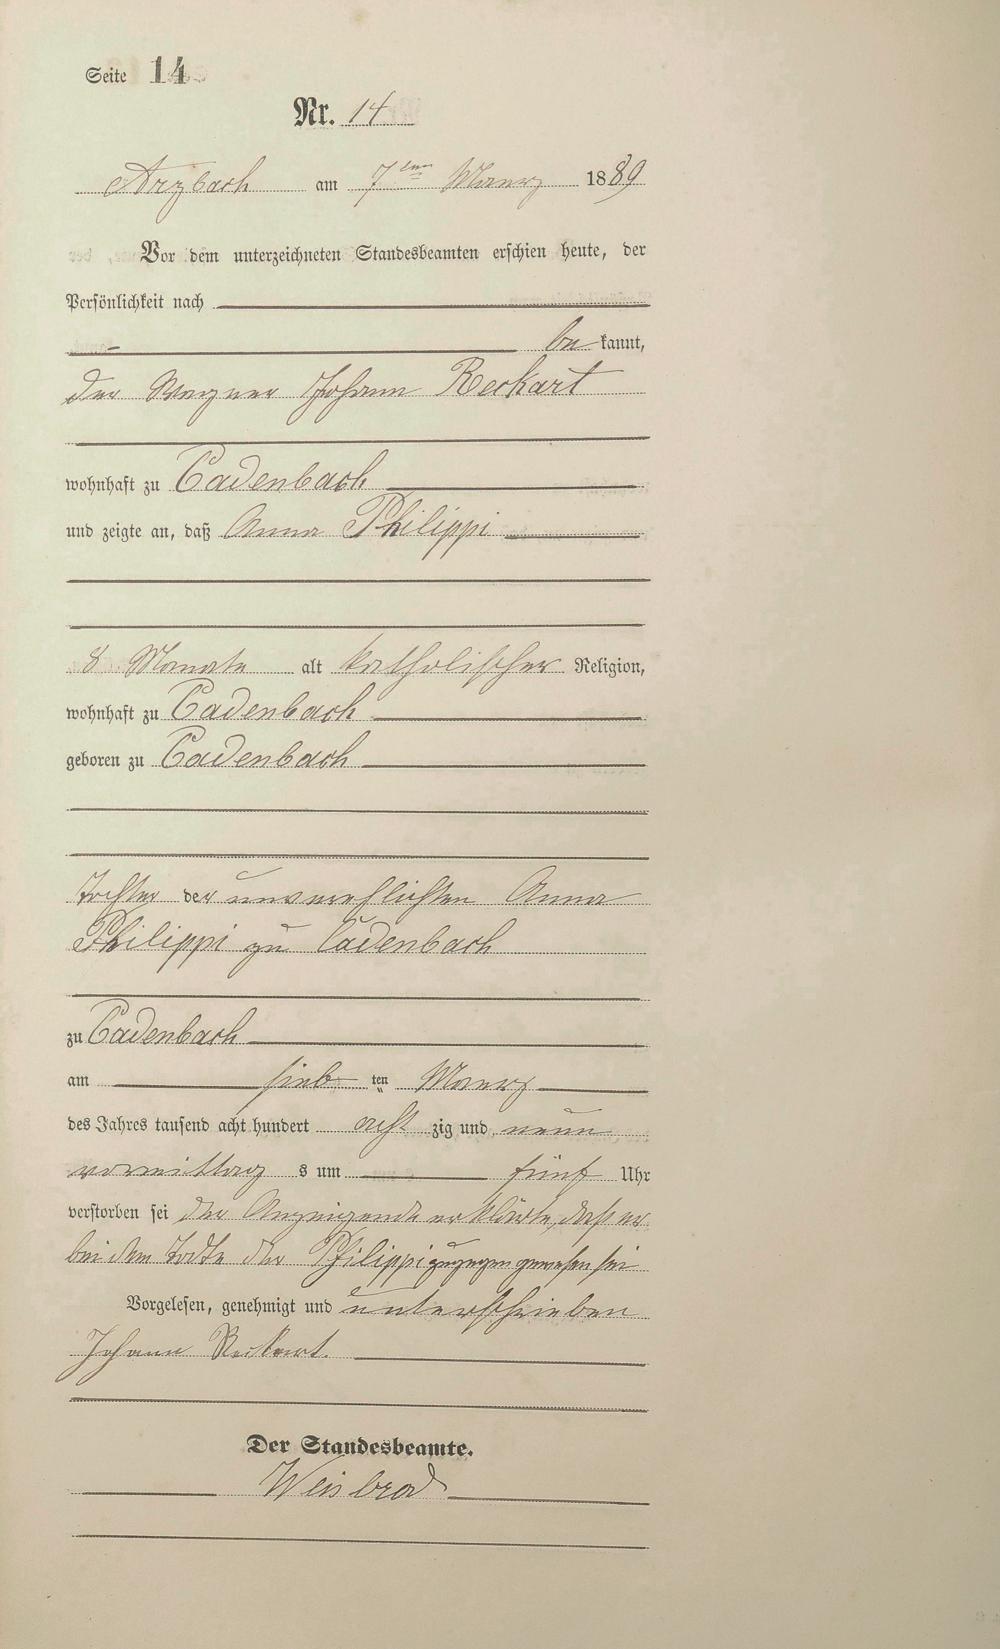 Seite 14
Nr. 14
Arzbach am 7ten Maerz 1889
Vor dem unterzeichneten Standesbeamten erschien heute, der
Persönlichkeit nach
be kannt,
der Wagner Johann Reckart
wohnhaft zu Cadenbach
und zeigte an, daß Anna Philippi
8 Monate alt katholischer Religion,
wohnhaft zu Cadenbach
geboren zu Cadenbach
Tochter der unverehlichten Anna
Philippi zu Cadenbach
zu Cadenbach
am sieb ten Maerz
des Jahres tausend acht hundert acht zig und neun
vormittag s um fünf Uhr
verstorben sei der Anzeigende erklärte, daß er
bei dem Tode der Philippi zugegen gewesen sei
Vorgelesen, genehmigt und unterschrieben
Johann Reckart
Der Standesbeamte.
Weisbrod